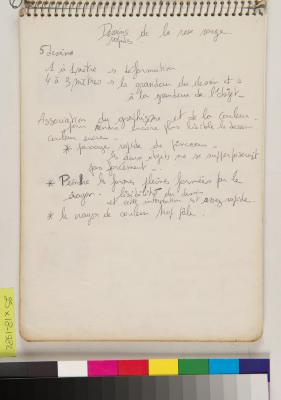 Dessins de la rose rouge
rapides
5 dessins
1 à 1 mètre → déformation
4 à 3 mètres → la grandeur du dessin est =
à la grandeur de l'objet.
Association du graphisme et de la couleur.
pour rendre encore plus lisible le dessin
couleur encre.
* passage rapide de pinceau.
les deux objets ne se superposeront
pas forcément.
* Peindre les formes pleines formées par le
crayon. lisibilité du dessin
et cette intégration est assez rapide
* le crayon de couleur trop pâle.